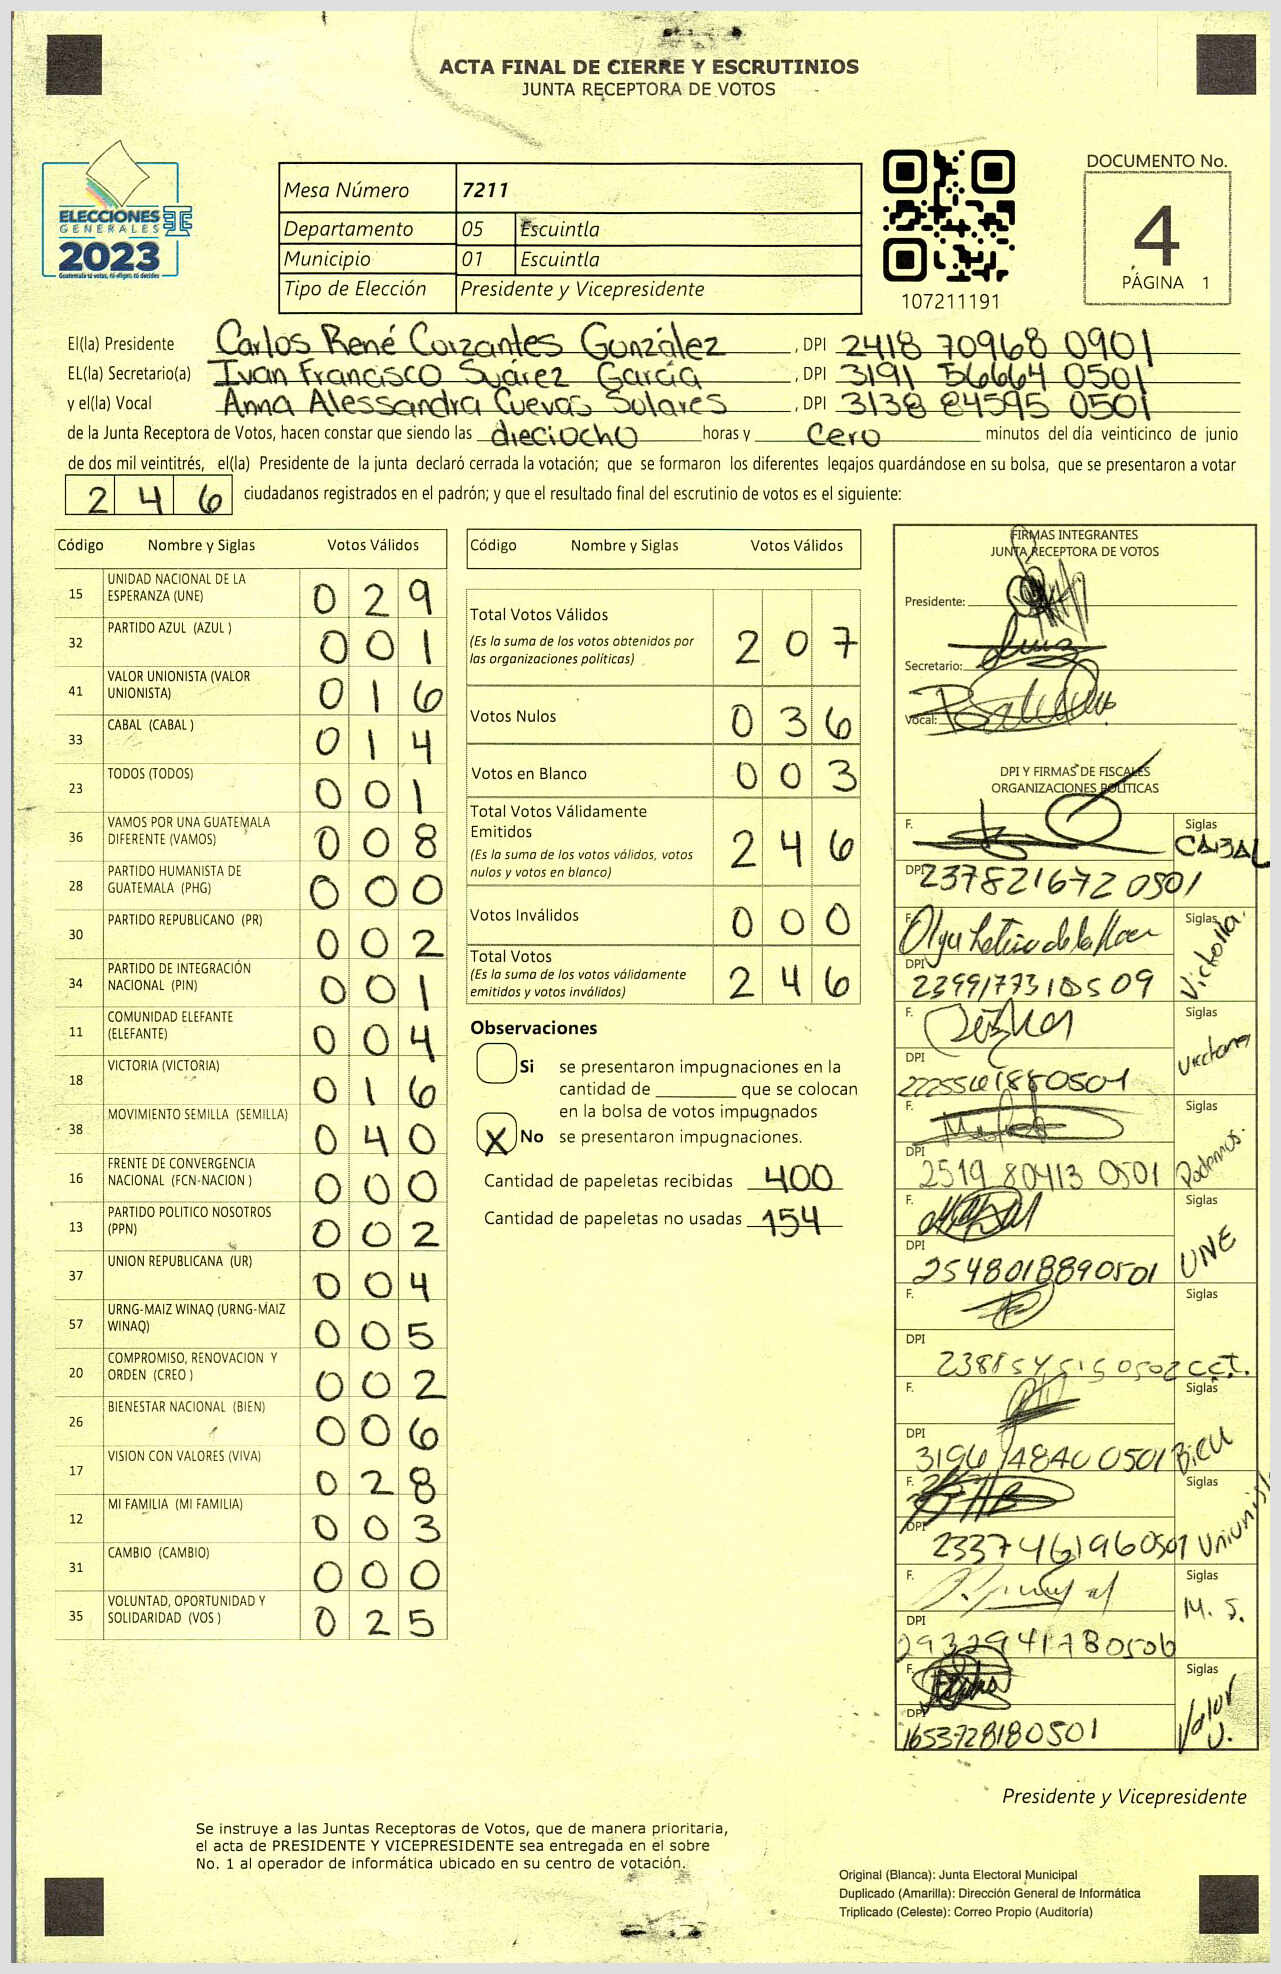 ACTA FINAL DE CIERRE Y ESCRUTINIOS
JUNTA RECEPTORA DE VOTOS
ELECCIONES
GENERALES
2023
Guatemala tú votas, tú eliges, tú decides
Mesa Número 7211
Departamento 05 Escuintla
Municipio 01 Escuintla
Tipo de Elección Presidente y Vicepresidente
107211191
DOCUMENTO No.
4
PÁGINA 1
El(la) Presidente Carlos René Corzantes González, DPI 2418 70968 0901
EL(la) Secretario(a) Ivan Francisco Suárez García, DPI 3191 56664 0501
y el(la) Vocal Anna Alessandra Cuevas Solares, DPI 3138 84595 0501
de la Junta Receptora de Votos, hacen constar que siendo las dieciocho horas y cero minutos del día veinticinco de junio
de dos mil veintitrés, el(la) Presidente de la junta declaró cerrada la votación; que se formaron los diferentes legajos guardándose en su bolsa, que se presentaron a votar
246 ciudadanos registrados en el padrón; y que el resultado final del escrutinio de votos es el siguiente:
Código Nombre y Siglas Votos Válidos
15 UNIDAD NACIONAL DE LA ESPERANZA (UNE) 029
32 PARTIDO AZUL (AZUL ) 001
41 VALOR UNIONISTA (VALOR UNIONISTA) 016
33 CABAL (CABAL ) 014
23 TODOS (TODOS) 001
36 VAMOS POR UNA GUATEMALA DIFERENTE (VAMOS) 008
28 PARTIDO HUMANISTA DE GUATEMALA (PHG) 000
30 PARTIDO REPUBLICANO (PR) 002
34 PARTIDO DE INTEGRACIÓN NACIONAL (PIN) 001
11 COMUNIDAD ELEFANTE (ELEFANTE) 004
18 VICTORIA (VICTORIA) 016
38 MOVIMIENTO SEMILLA (SEMILLA) 040
16 FRENTE DE CONVERGENCIA NACIONAL (FCN-NACION ) 000
13 PARTIDO POLITICO NOSOTROS (PPN) 002
37 UNION REPUBLICANA (UR) 004
57 URNG-MAIZ WINAQ (URNG-MAIZ WINAQ) 005
20 COMPROMISO, RENOVACION Y ORDEN (CREO ) 002
26 BIENESTAR NACIONAL (BIEN) 006
17 VISION CON VALORES (VIVA) 028
12 MI FAMILIA (MI FAMILIA) 003
31 CAMBIO (CAMBIO) 000
35 VOLUNTAD, OPORTUNIDAD Y SOLIDARIDAD (VOS ) 025
Código Nombre y Siglas Votos Válidos
Total Votos Válidos 207
(Es la suma de los votos obtenidos por
las organizaciones políticas)
Votos Nulos 036
Votos en Blanco 003
Total Votos Válidamente
Emitidos 246
(Es la suma de los votos válidos, votos
nulos y votos en blanco)
Votos Inválidos 000
Total Votos 246
(Es la suma de los votos válidamente
emitidos y votos inválidos)
Observaciones
Si se presentaron impugnaciones en la
cantidad de ________ que se colocan
en la bolsa de votos impugnados
X No se presentaron impugnaciones.
Cantidad de papeletas recibidas 400
Cantidad de papeletas no usadas 154
FIRMAS INTEGRANTES
JUNTA RECEPTORA DE VOTOS
Presidente:
Secretario:
Vocal:
DPI Y FIRMAS DE FISCALES
ORGANIZACIONES POLÍTICAS
F. Siglas CABAL
DPI 237821672 0501
F. Siglas Victoria.
DPI
F. Siglas Victoria
DPI
F. Siglas Podemos.
DPI 2519 80413 0501
F. Siglas UNE
DPI 2548018890501
F. Siglas
DPI
F. Siglas
DPI
F. Siglas
DPI 2337461960501
F. Siglas M. S.
DPI 2932941780506
F. Siglas Valor U.
DPI 1653728180501
Presidente y Vicepresidente
Se instruye a las Juntas Receptoras de Votos, que de manera prioritaria,
el acta de PRESIDENTE Y VICEPRESIDENTE sea entregada en el sobre
No. 1 al operador de informática ubicado en su centro de votación.
Original (Blanca): Junta Electoral Municipal
Duplicado (Amarilla): Dirección General de Informática
Triplicado (Celeste): Correo Propio (Auditoría)